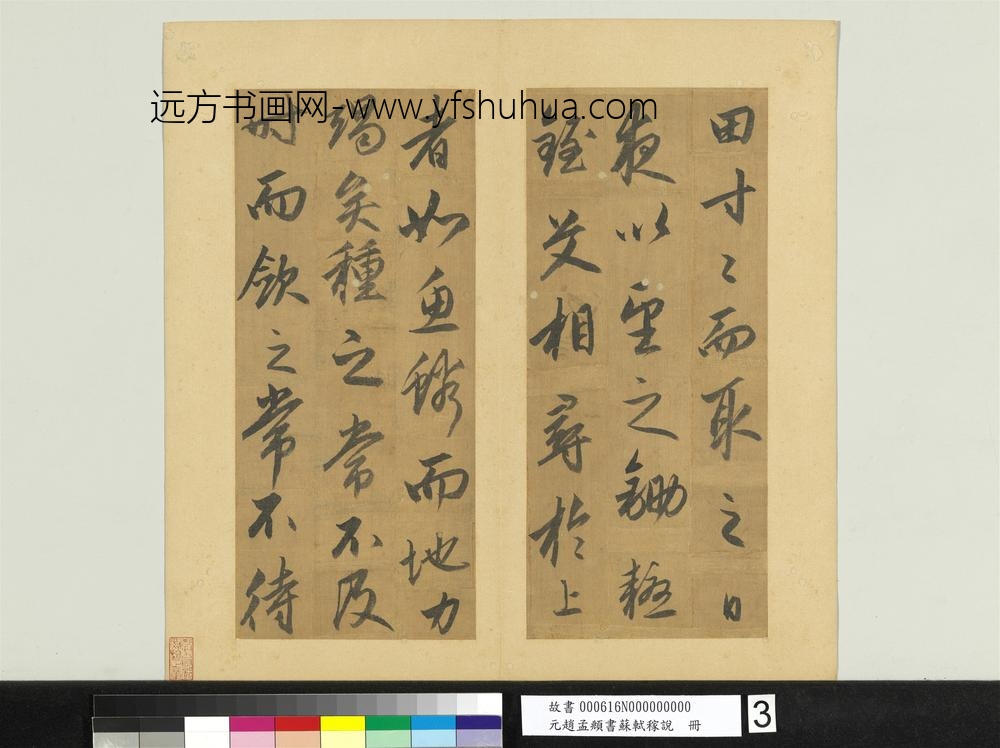 远方书画网-www.yfshuhua.com
田寸〻而取之日
夜以望之鋤耰
銍艾相尋於上
者如魚鱗而地力
竭矣種之常不及
時而斂之常不待
故書 000616N000000000
元趙孟頫書蘇軾稼說 冊
3